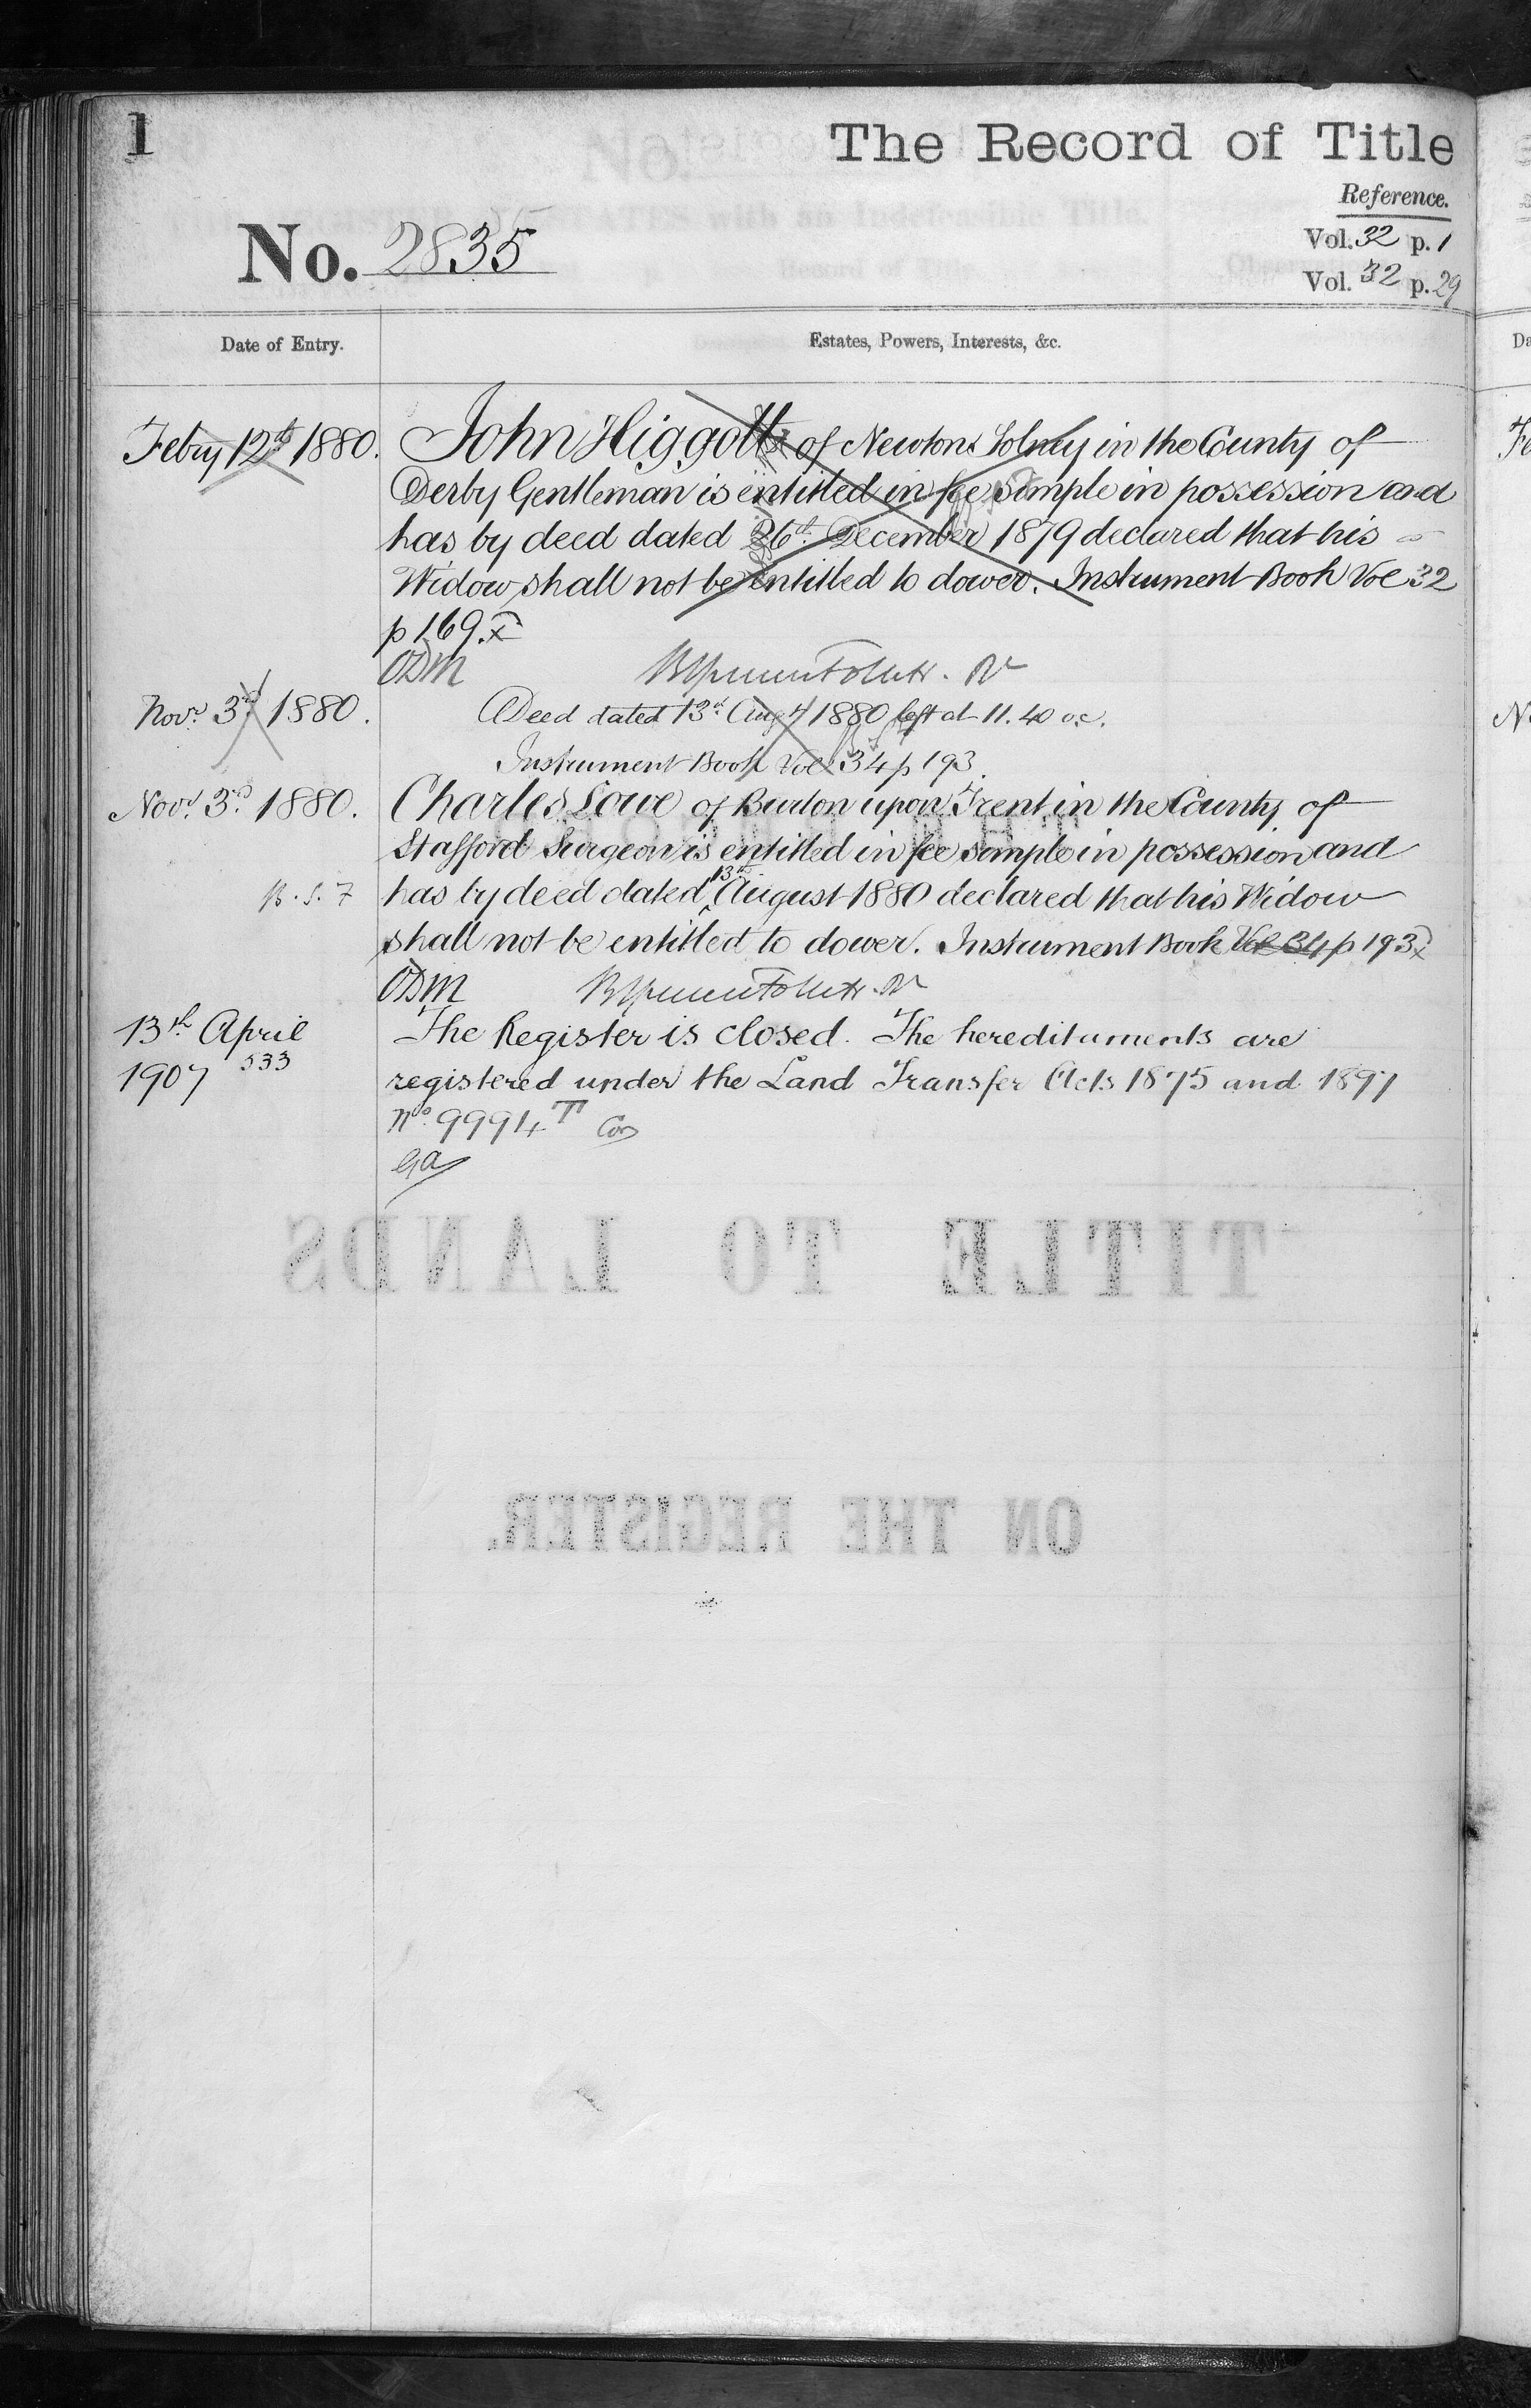 1
The Record of Title
Reference.
No. 2835
Vol. 32 p. 1
Vol. 32 p. 29
Date of Entry.
Estates, Powers, Interests, &c.
Febry 12th 1880.
John Higgott of Newton Solney in the County of
Derby Gentleman is entitled in fee simple in possession and
has by deed dated 26th December 1879 declared that his
Widow shall not be entitled to dower. Instrument Book Vol 32
p 169.
ODM
Novr. 3rd 1880.
Deed dated 13th Aug 1880 left at 11.40 o.c.
Instrument Book Vol 34 p 193.
Novr. 3rd 1880.
Charles Lowe of Burton upon Trent in the County of
Stafford Surgeon is entitled in fee simple in possession and
has by deed dated 13th August 1880 declared that his Widow
shall not be entitled to dower. Instrument Book Vol 34 p 193
ODM
13th April
1907 533
The Register is closed. The hereditaments are
registered under the Land Transfer Acts 1875 and 1897
No. 9994 T
TITLE TO LANDS
ON THE REGISTER.